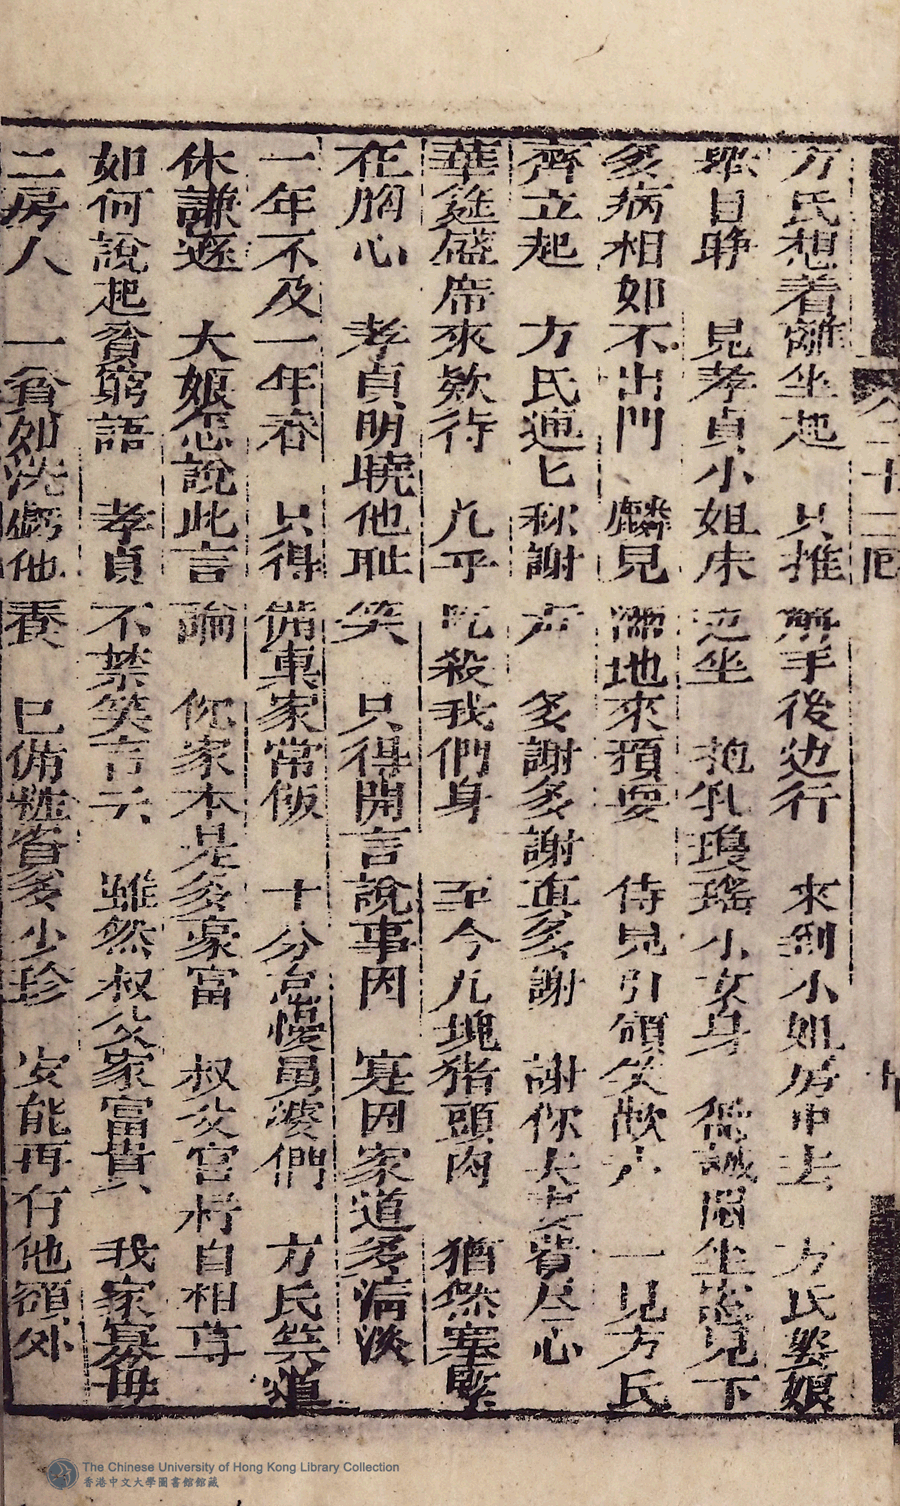 八 二十二回
方氏想着離坐起 只推解手後边行 來到小姐房中去 方氏婆娘
眼目睁 見孝貞小姐床边坐 抱乳瓊瑶小女身 紙誠閙坐窓見下
多病相如不出門 麟見滿地來頑耍 侍見引領笑歡声 一見方氏
齊立起 方氏連匕称謝声 多謝多謝直多謝 謝你大費尽心
華筵盛席來欸待 几乎吃殺我們身 至今几塊猪頭肉 猶然塞堅
在胸心 孝貞明曉他耻笑 只得開言說事因 寔因家道多清淡
一年不及一年春 只得備東家常飯 十分怠慢員婆們 方氏笑道
休謙遜 大娘怎說此言論 你家本是多豪富 叔父官拜自相尊
如何說起貧窮語 孝貞不禁笑言云 雖然叔父家富貴 我家寡母
二房人 一貧如洗虧他養 已備粧奩多少珍 安能再有他額外
The Chinese University of Hong Kong Library Collection
香港中文大學圖書館館藏